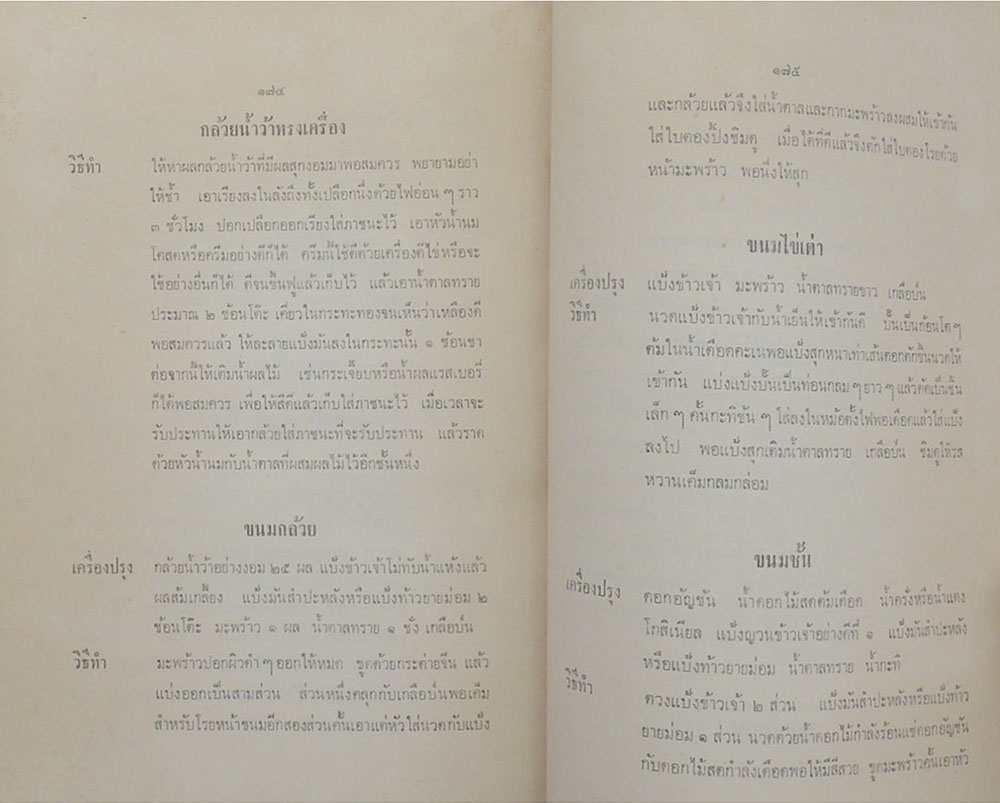 ๑๗๔
กล้วยน้ำว้าทรงเครื่อง
วิธีทำ ให้หาผลกล้วยน้ำว้าที่มีผลสุกงอมมาพอสมควร พยายามอย่า
ให้ช้ำ เอาเรียงลงในลังถึงทั้งเปลือกนึ่งด้วยไฟอ่อน ๆ ราว
๓ ชั่วโมง ปอกเปลือกออกเรียงใส่ภาชนะไว้ เอาหัวน้ำนม
โคสดหรือครีมอย่างดีก็ได้ ครีมนี้ใช้ตีด้วยเครื่องตีไข่หรือจะ
ใช้อย่างอื่นก็ได้ ตีจนขึ้นฟูแล้วเก็บไว้ แล้วเอาน้ำตาลทราย
ประมาณ ๒ ช้อนโต๊ะ เคี่ยวในกระทะทองจนเห็นว่าเหลืองดี
พอสมควรแล้ว ให้ละลายแป้งมันลงในกระทะนั้น ๑ ช้อนชา
ต่อจากนี้ให้เติมน้ำผลไม้ เช่นกระเจี๊ยบหรือน้ำผลแรสเบอรี่
ก็ได้พอสมควร เพื่อให้สีดีแล้วเก็บใส่ภาชนะไว้ เมื่อเวลาจะ
รับประทานให้เอากล้วยใส่ภาชนะที่จะรับประทาน แล้วราด
ด้วยหัวน้ำนมกับน้ำตาลที่ผสมผลไม้ไว้อีกชั้นหนึ่ง
ขนมกล้วย
เครื่องปรุง กล้วยน้ำว้าอย่างงอม ๒๕ ผล แป้งข้าวเจ้าโม่ทับน้ำแห้งแล้ว
ผลส้มเกลี้ยง แป้งมันสำปะหลังหรือแป้งท้าวยายม่อม ๒
ช้อนโต๊ะ มะพร้าว ๑ ผล น้ำตาลทราย ๑ ชั่ง เกลือป่น
วิธีทำ มะพร้าวปอกผิวดำ ๆ ออกให้หมด ขูดด้วยกระต่ายจีน แล้ว
แบ่งออกเป็นสามส่วน ส่วนหนึ่งคลุกกับเกลือป่นพอเค็ม
สำหรับโรยหน้าขนมอีกสองส่วนคั้นเอาแต่หัว ใส่นวดกับแป้ง
๑๗๕
และกล้วยแล้วจึงใส่น้ำตาลและกากมะพร้าวลงผสมให้เข้ากัน
ใส่ใบตองปิ้งชิมดู เมื่อได้ที่ดีแล้วจึงตักใส่ใบตองโรยด้วย
หน้ามะพร้าว พอนึ่งให้สุก
ขนมไข่เต่า
เครื่องปรุง แป้งข้าวเจ้า มะพร้าว น้ำตาลทรายขาว เกลือป่น
วิธีทำ นวดแป้งข้าวเจ้ากับน้ำเย็นให้เข้ากันดี ปั้นเป็นก้อนโต ๆ
ต้มในน้ำเดือดคะเนพอแป้งสุกหนาเท่าเส้นตอกตักขึ้นนวดให้
เข้ากัน แบ่งแป้งปั้นเป็นท่อนกลม ๆ ยาว ๆ แล้วตัดเป็นชิ้น
เล็ก ๆ คั้นกะทิข้น ๆ ใส่ลงในหม้อตั้งไฟพอเดือดแล้วใส่แป้ง
ลงไป พอแป้งสุกเติมน้ำตาลทราย เกลือป่น ชิมดูให้รส
หวานเค็มกลมกล่อม
ขนมชั้น
เครื่องปรุง ดอกอัญชัน น้ำดอกไม้สดต้มเดือด น้ำครั่งหรือน้ำแดง
โกสิเนียล แป้งญวนข้าวเจ้าอย่างดีที่ ๑ แป้งมันสำปะหลัง
หรือแป้งท้าวยายม่อม น้ำตาลทราย น้ำกะทิ
วิธีทำ ตวงแป้งข้าวเจ้า ๒ ส่วน แป้งมันสำปะหลังหรือแป้งท้าว
ยายม่อม ๑ ส่วน นวดด้วยน้ำดอกไม้กำลังร้อนแช่ดอกอัญชัน
กับดอกไม้สดกำลังเดือดพอให้มีสีสวย ขูดมะพร้าวคั้นเอาหัว